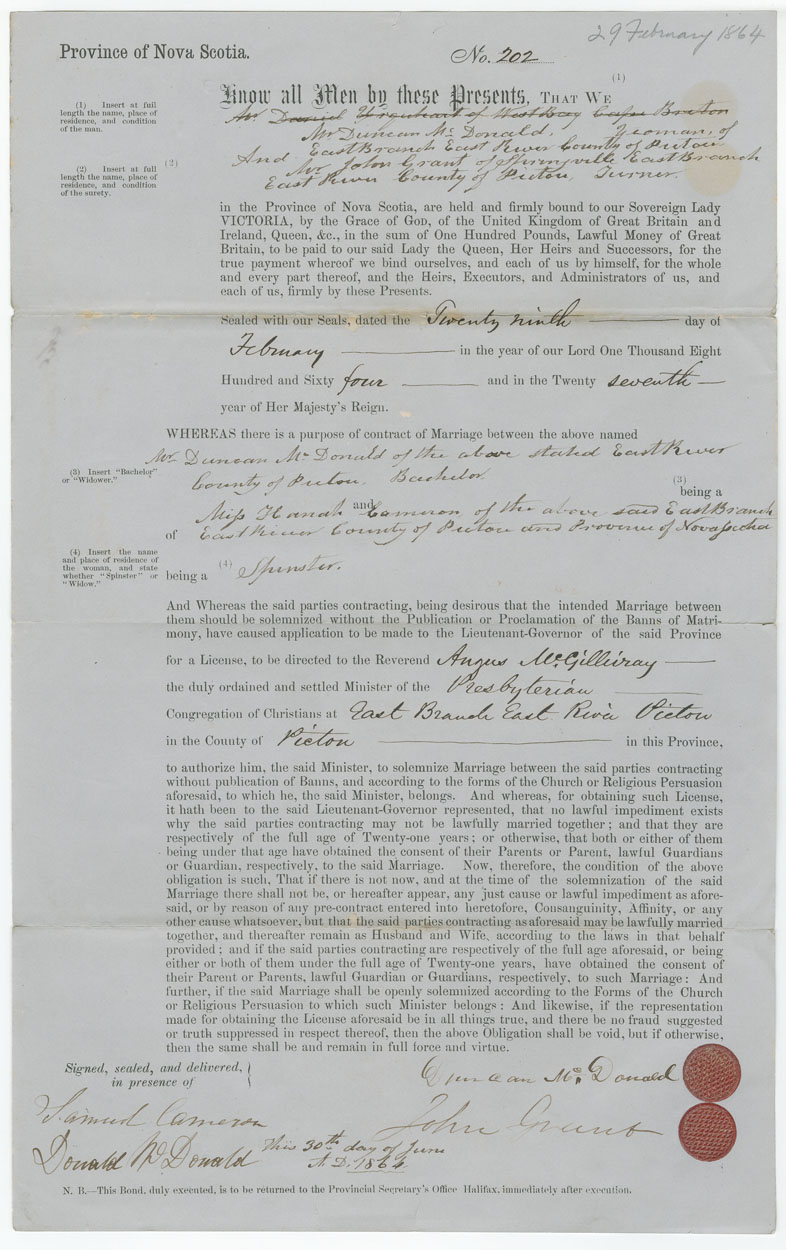 29 February 1864
Province of Nova Scotia.
No. 202
(1)
Know all Men by these Presents, THAT WE
Mr Daniel Urquhart of West Bay Cape Breton
(1) Insert at full
length the name, place of
residence, and condition
of the man.
Mr Duncan Mc Donald, Yeoman, of
East Branch East River County of Pictou
And
(2) Insert at full
length the name, place of
residence, and condition
of the surety.
(2)
Mr John Grant of Springville East Branch
East River County of Pictou, Turner.
in the Province of Nova Scotia, are held and firmly bound to our Sovereign Lady
VICTORIA, by the Grace of GOD, of the United Kingdom of Great Britain and
Ireland, Queen, &c., in the sum of One Hundred Pounds, Lawful Money of Great
Britain, to be paid to our said Lady the Queen, Her Heirs and Successors, for the
true payment whereof we bind ourselves, and each of us by himself, for the whole
and every part thereof, and the Heirs, Executors, and Administrators of us, and
each of us, firmly by these Presents.
Sealed with our Seals, dated the Twenty ninth day of
February in the year of our Lord One Thousand Eight
Hundred and Sixty four and in the Twenty seventh
year of Her Majesty's Reign.
WHEREAS there is a purpose of contract of Marriage between the above named
Mr Duncan Mc Donald of the above stated East River
(3) Insert "Bachelor"
or "Widower."
County of Pictou, Bachelor
(3)
being a
and
Miss Hanah Cameron of the above said East Branch
of East River County of Pictou and Province of Nova Scotia
(4) Insert the name
and place of residence of
the woman, and state
whether "Spinster" or
"Widow."
being a (4) Spinster.
And Whereas the said parties contracting, being desirous that the intended Marriage between
them should be solemnized without the Publication or Proclamation of the Banns of Matri-
mony, have caused application to be made to the Lieutenant-Governor of the said Province
for a License, to be directed to the Reverend Angus McGillivray
the duly ordained and settled Minister of the Presbyterian
Congregation of Christians at East Branch East River Pictou
in the County of Pictou in this Province,
to authorize him, the said Minister, to solemnize Marriage between the said parties contracting
without publication of Banns, and according to the forms of the Church or Religious Persuasion
aforesaid, to which he, the said Minister, belongs. And whereas, for obtaining such License,
it hath been to the said Lieutenant-Governor represented, that no lawful impediment exists
why the said parties contracting may not be lawfully married together; and that they are
respectively of the full age of Twenty-one years; or otherwise, that both or either of them
being under that age have obtained the consent of their Parents or Parent, lawful Guardians
or Guardian, respectively, to the said Marriage. Now, therefore, the condition of the above
obligation is such, That if there is not now, and at the time of the solemnization of the said
Marriage there shall not be, or hereafter appear, any just cause or lawful impediment as afore-
said, or by reason of any pre-contract entered into heretofore, Consanguinity, Affinity, or any
other cause whatsoever, but that the said parties contracting as aforesaid may be lawfully married
together, and thereafter remain as Husband and Wife, according to the laws in that behalf
provided; and if the said parties contracting are respectively of the full age aforesaid, or being
either or both of them under the full age of Twenty-one years, have obtained the consent of
their Parent or Parents, lawful Guardian or Guardians, respectively, to such Marriage: And
further, if the said Marriage shall be openly solemnized according to the Forms of the Church
or Religious Persuasion to which such Minister belongs: And likewise, if the representation
made for obtaining the License aforesaid be in all things true, and there be no fraud suggested
or truth suppressed in respect thereof, then the above Obligation shall be void, but if otherwise,
then the same shall be and remain in full force and virtue.
Signed, sealed, and delivered,
in presence of
Duncan Mc Donald
Samuel Cameron
John Grant
Donald McDonald This 30th day of June
A.D. 1864
N. B.—This Bond, duly executed, is to be returned to the Provincial Secretary's Office Halifax, immediately after execution.